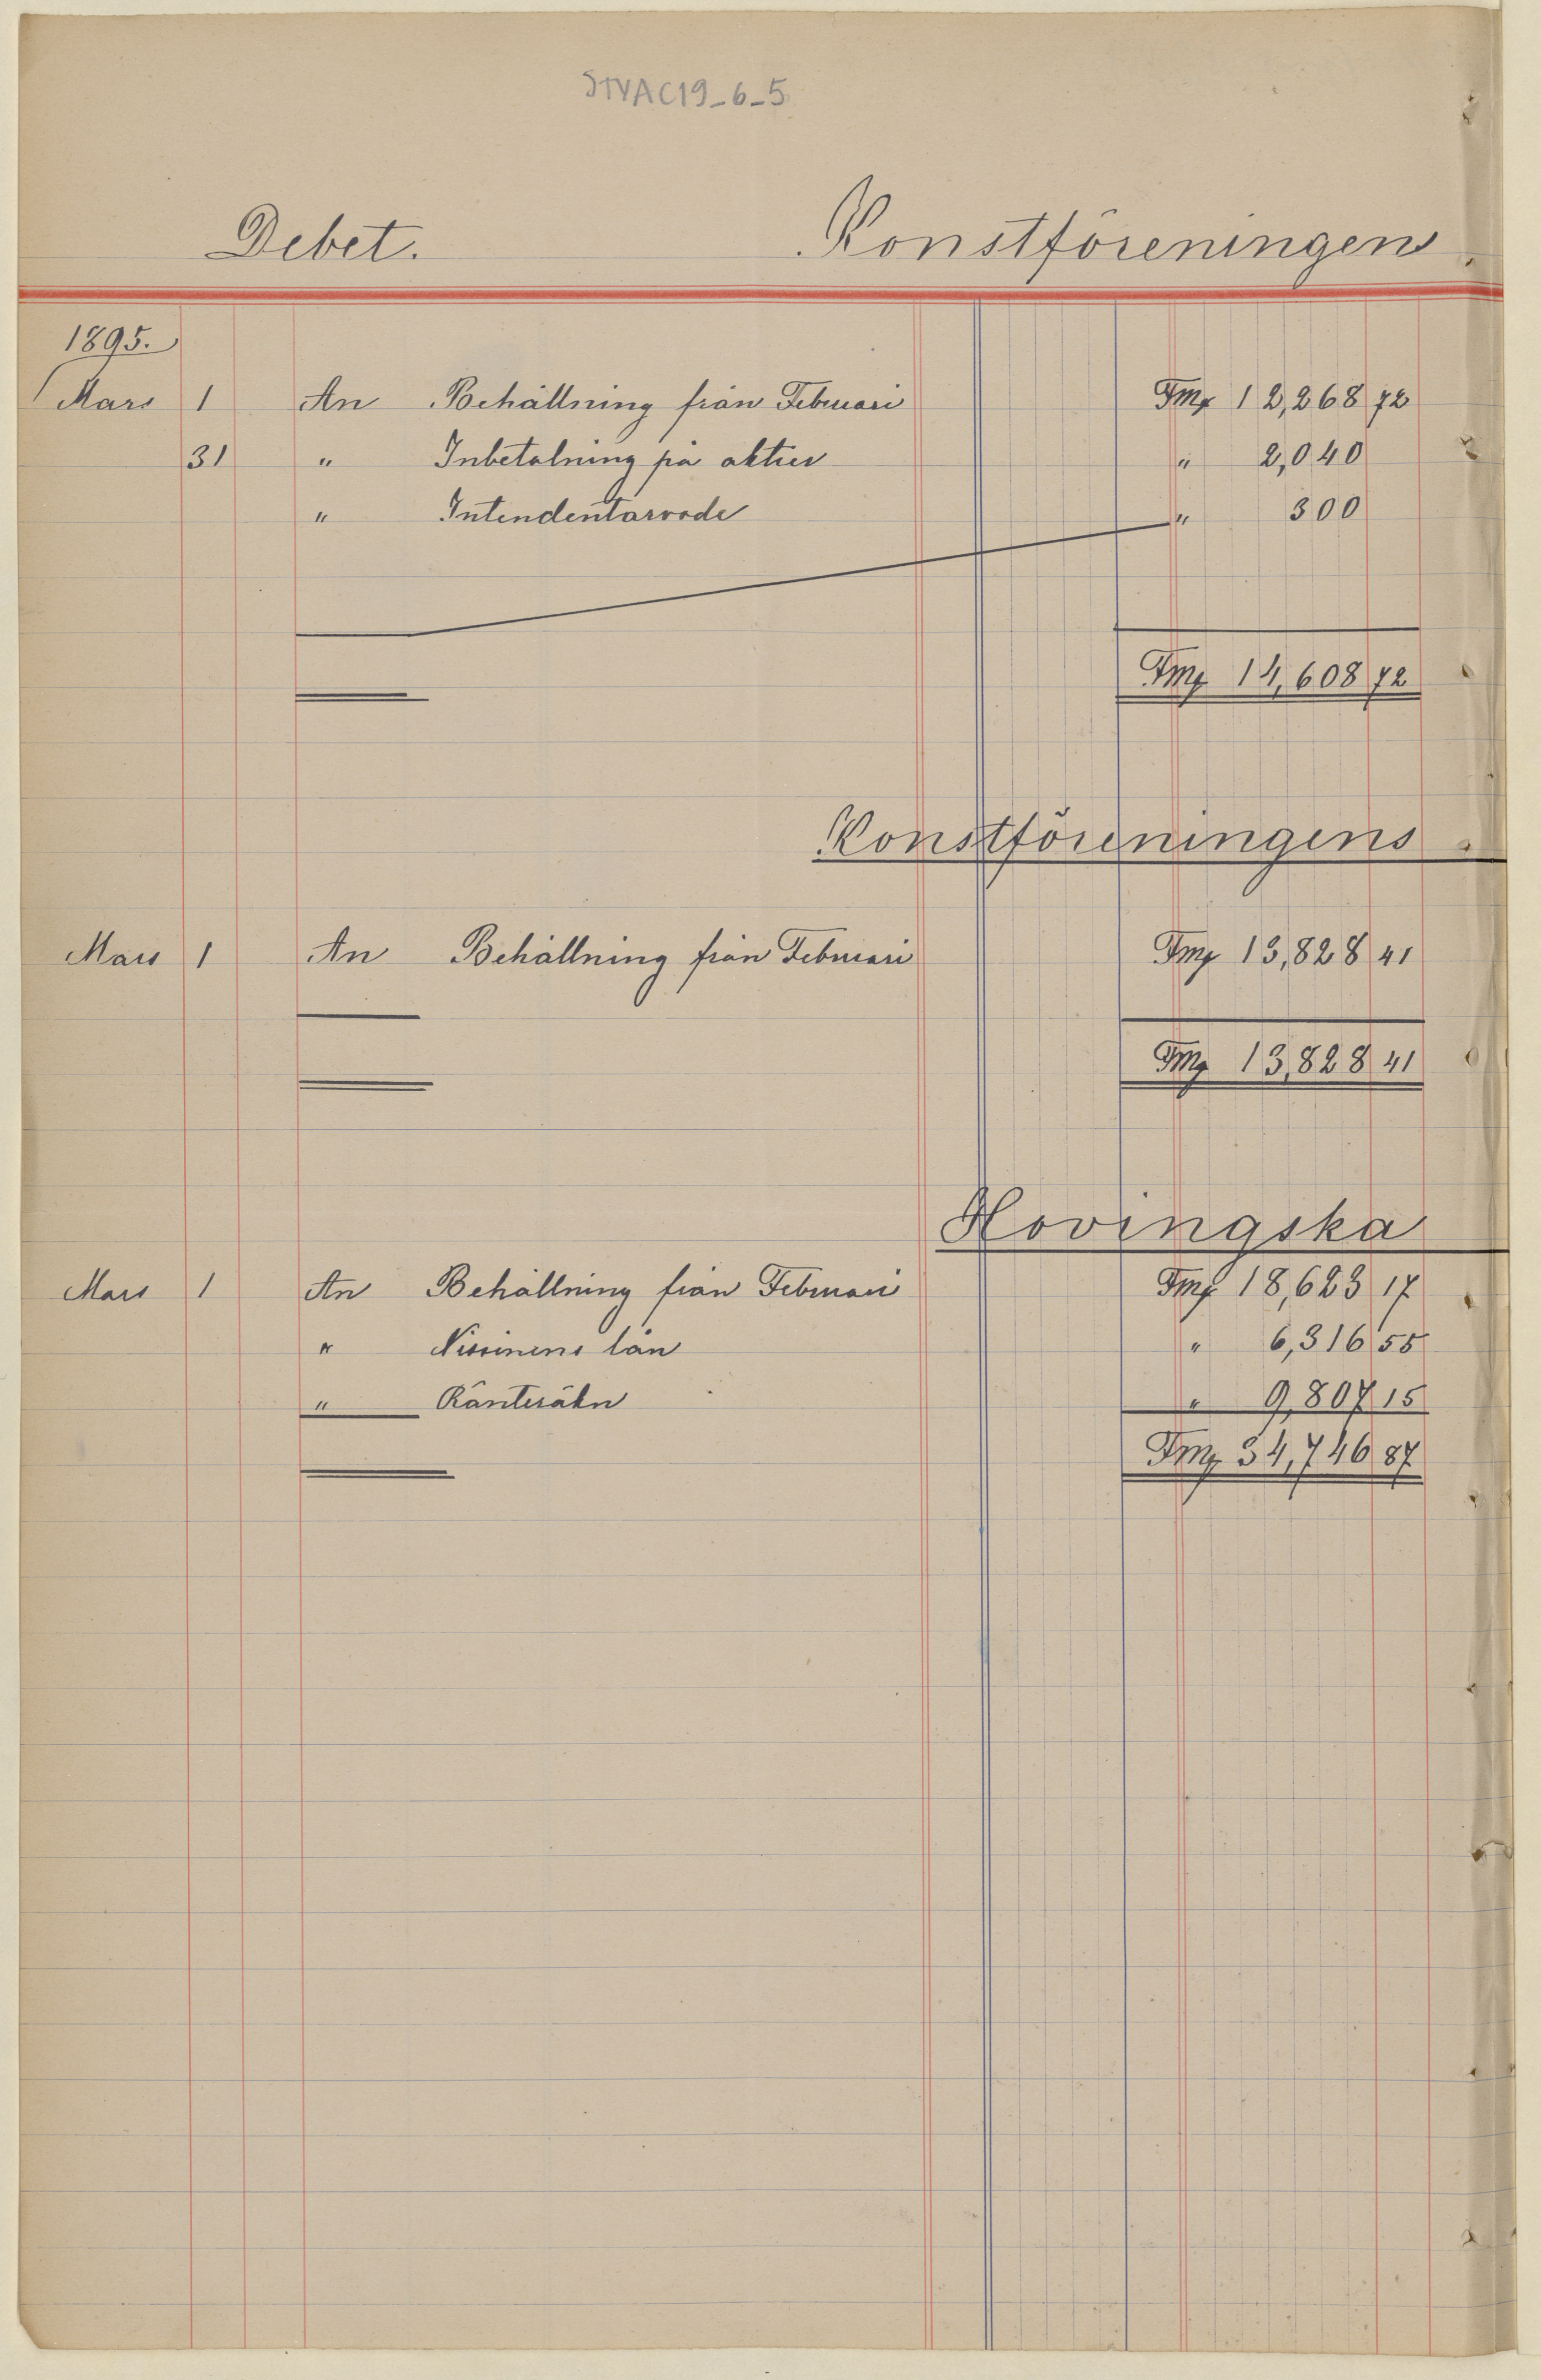 STYAC19_6_5
Debet. Konstföreningens
1895.
Mars 1 An Behållning från Februari Fmk 12,268 72
31 " Inbetalning på aktier " 2,040
" Intendentarvode " 300
Fmk 14,608 72
Konstföreningens
Mars 1 An Behållning från Februari Fmk 13,828 41
Fmk 13,828 41
Hovingska
Mars 1 An Behållning från Februari Fmk 18,623 17
" Nissinens lån " 6,316 55
" Ränteräkn " 9,807 15
Fmk 34,746 87